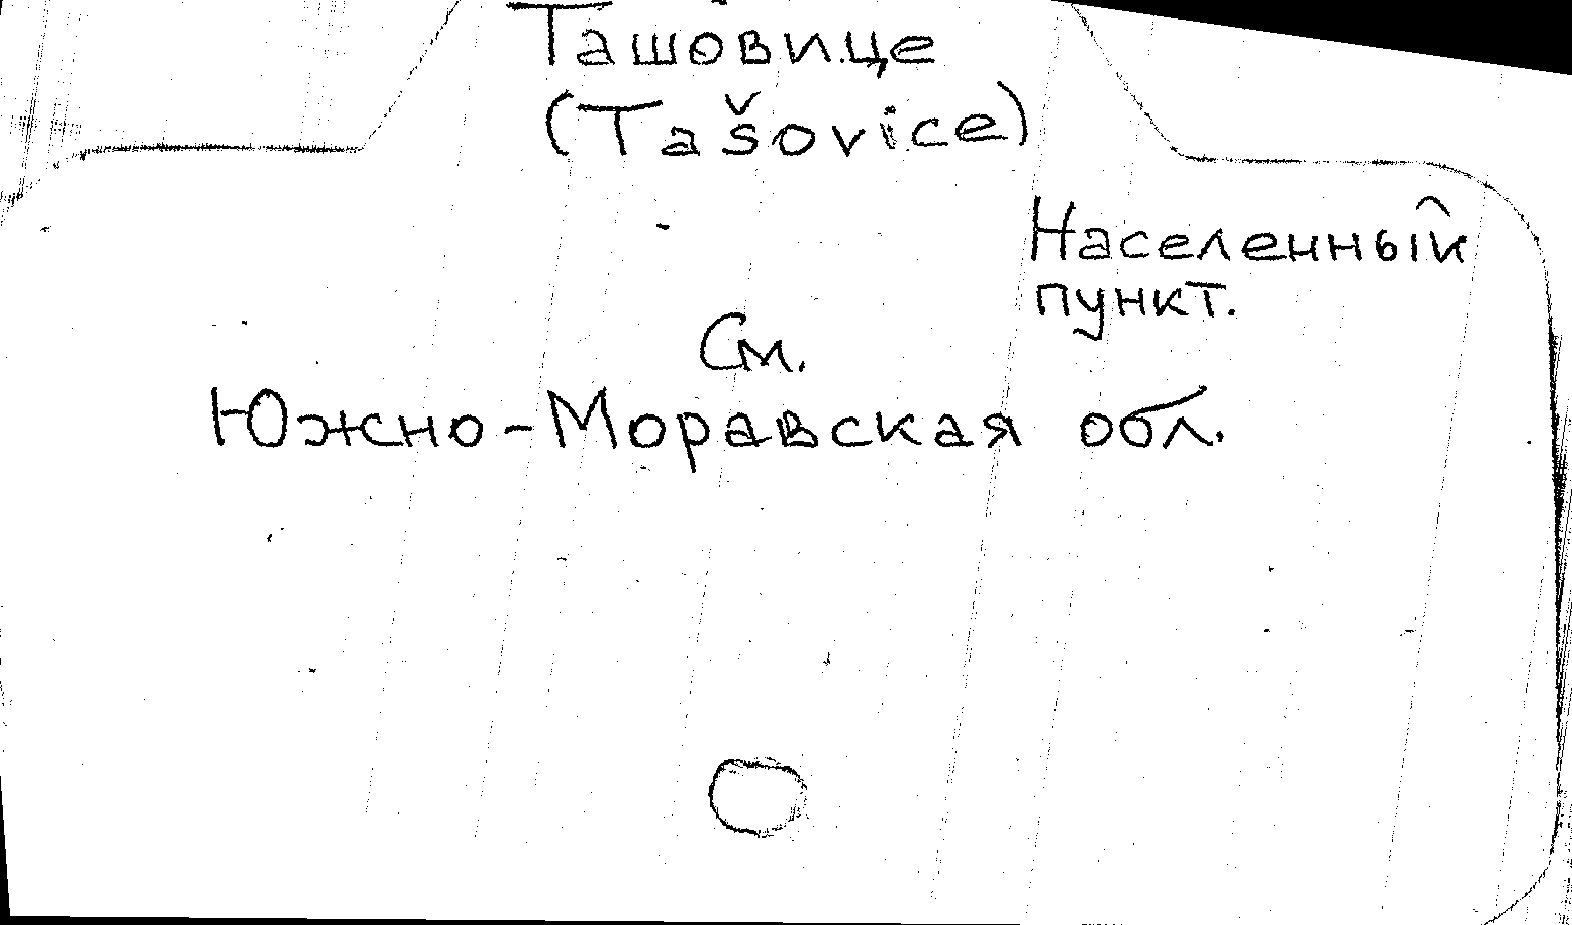 Ташовице
(Tašovice)
Населенный
пункт.
См.
Южно-Моравская обл.